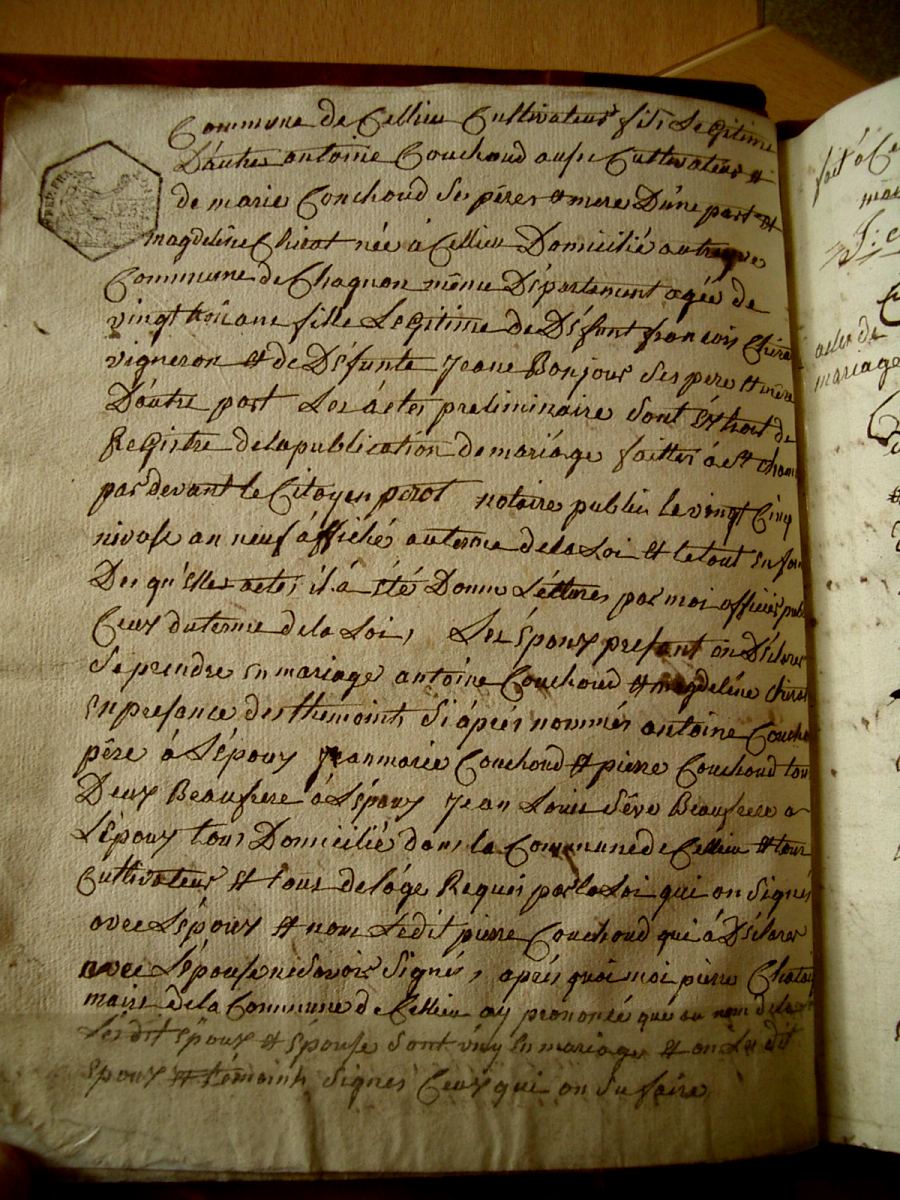 Commune de Cellieu Cultivateur fils Legitime
D'autre antoine Couchoud ausi Cultivateur et
de marie Couchoud ses pères et mere D'une part et
magdeline Chirat née à Cellieu Domicilié
Commune de Chagnon même Département agée de
vingt trois ans fille Legitime de Défunt francois Chira
vigneron et de Défunte Jeane Bonjour Ses pere et mère
D'autre part Les áctes preliminaire Sont Extrait de
Registre de la publication de mariage faittes à st cham
par devant le Citoyen perot notaire public le vingt Cinq
nivose an neuf áffiché au terme de la Loi et le tout en for
Des qu'elles actes, il à été Donné Lecttures par moi officier publ
Ceux du terme de la Loi, Les Époux presant on Déclarer
Se prendre en mariage antoine Couchoud et magdeléne Chirat
En presance des thémoints Si áprés nommés antoine Coucho
père à L'époux jean marie Couchoud et pierre Couchoud tou
Deux Beaufrere à L'époux Jean Louis Sêve Beaufrere a
L'époux tous Domicilié dans la Commune de Cellieu et tous
Cultivateur et tous de l'áge Requis par la Loi qui on Signés
avec L'époux et nom Ledit pierre Couchoud qui à Déclarer
avec L'épouse ne Savoir Signés, aprés quoi moi pierre Chata
maire de la Commune de Cellieu ay prononcé que au nom de la
Lesdit époux et Épouse Sont uny En mariage et on Le dit
Epoux et témoints Signés Ceux qui on Su faire
fait à Ce
acte de
mariage